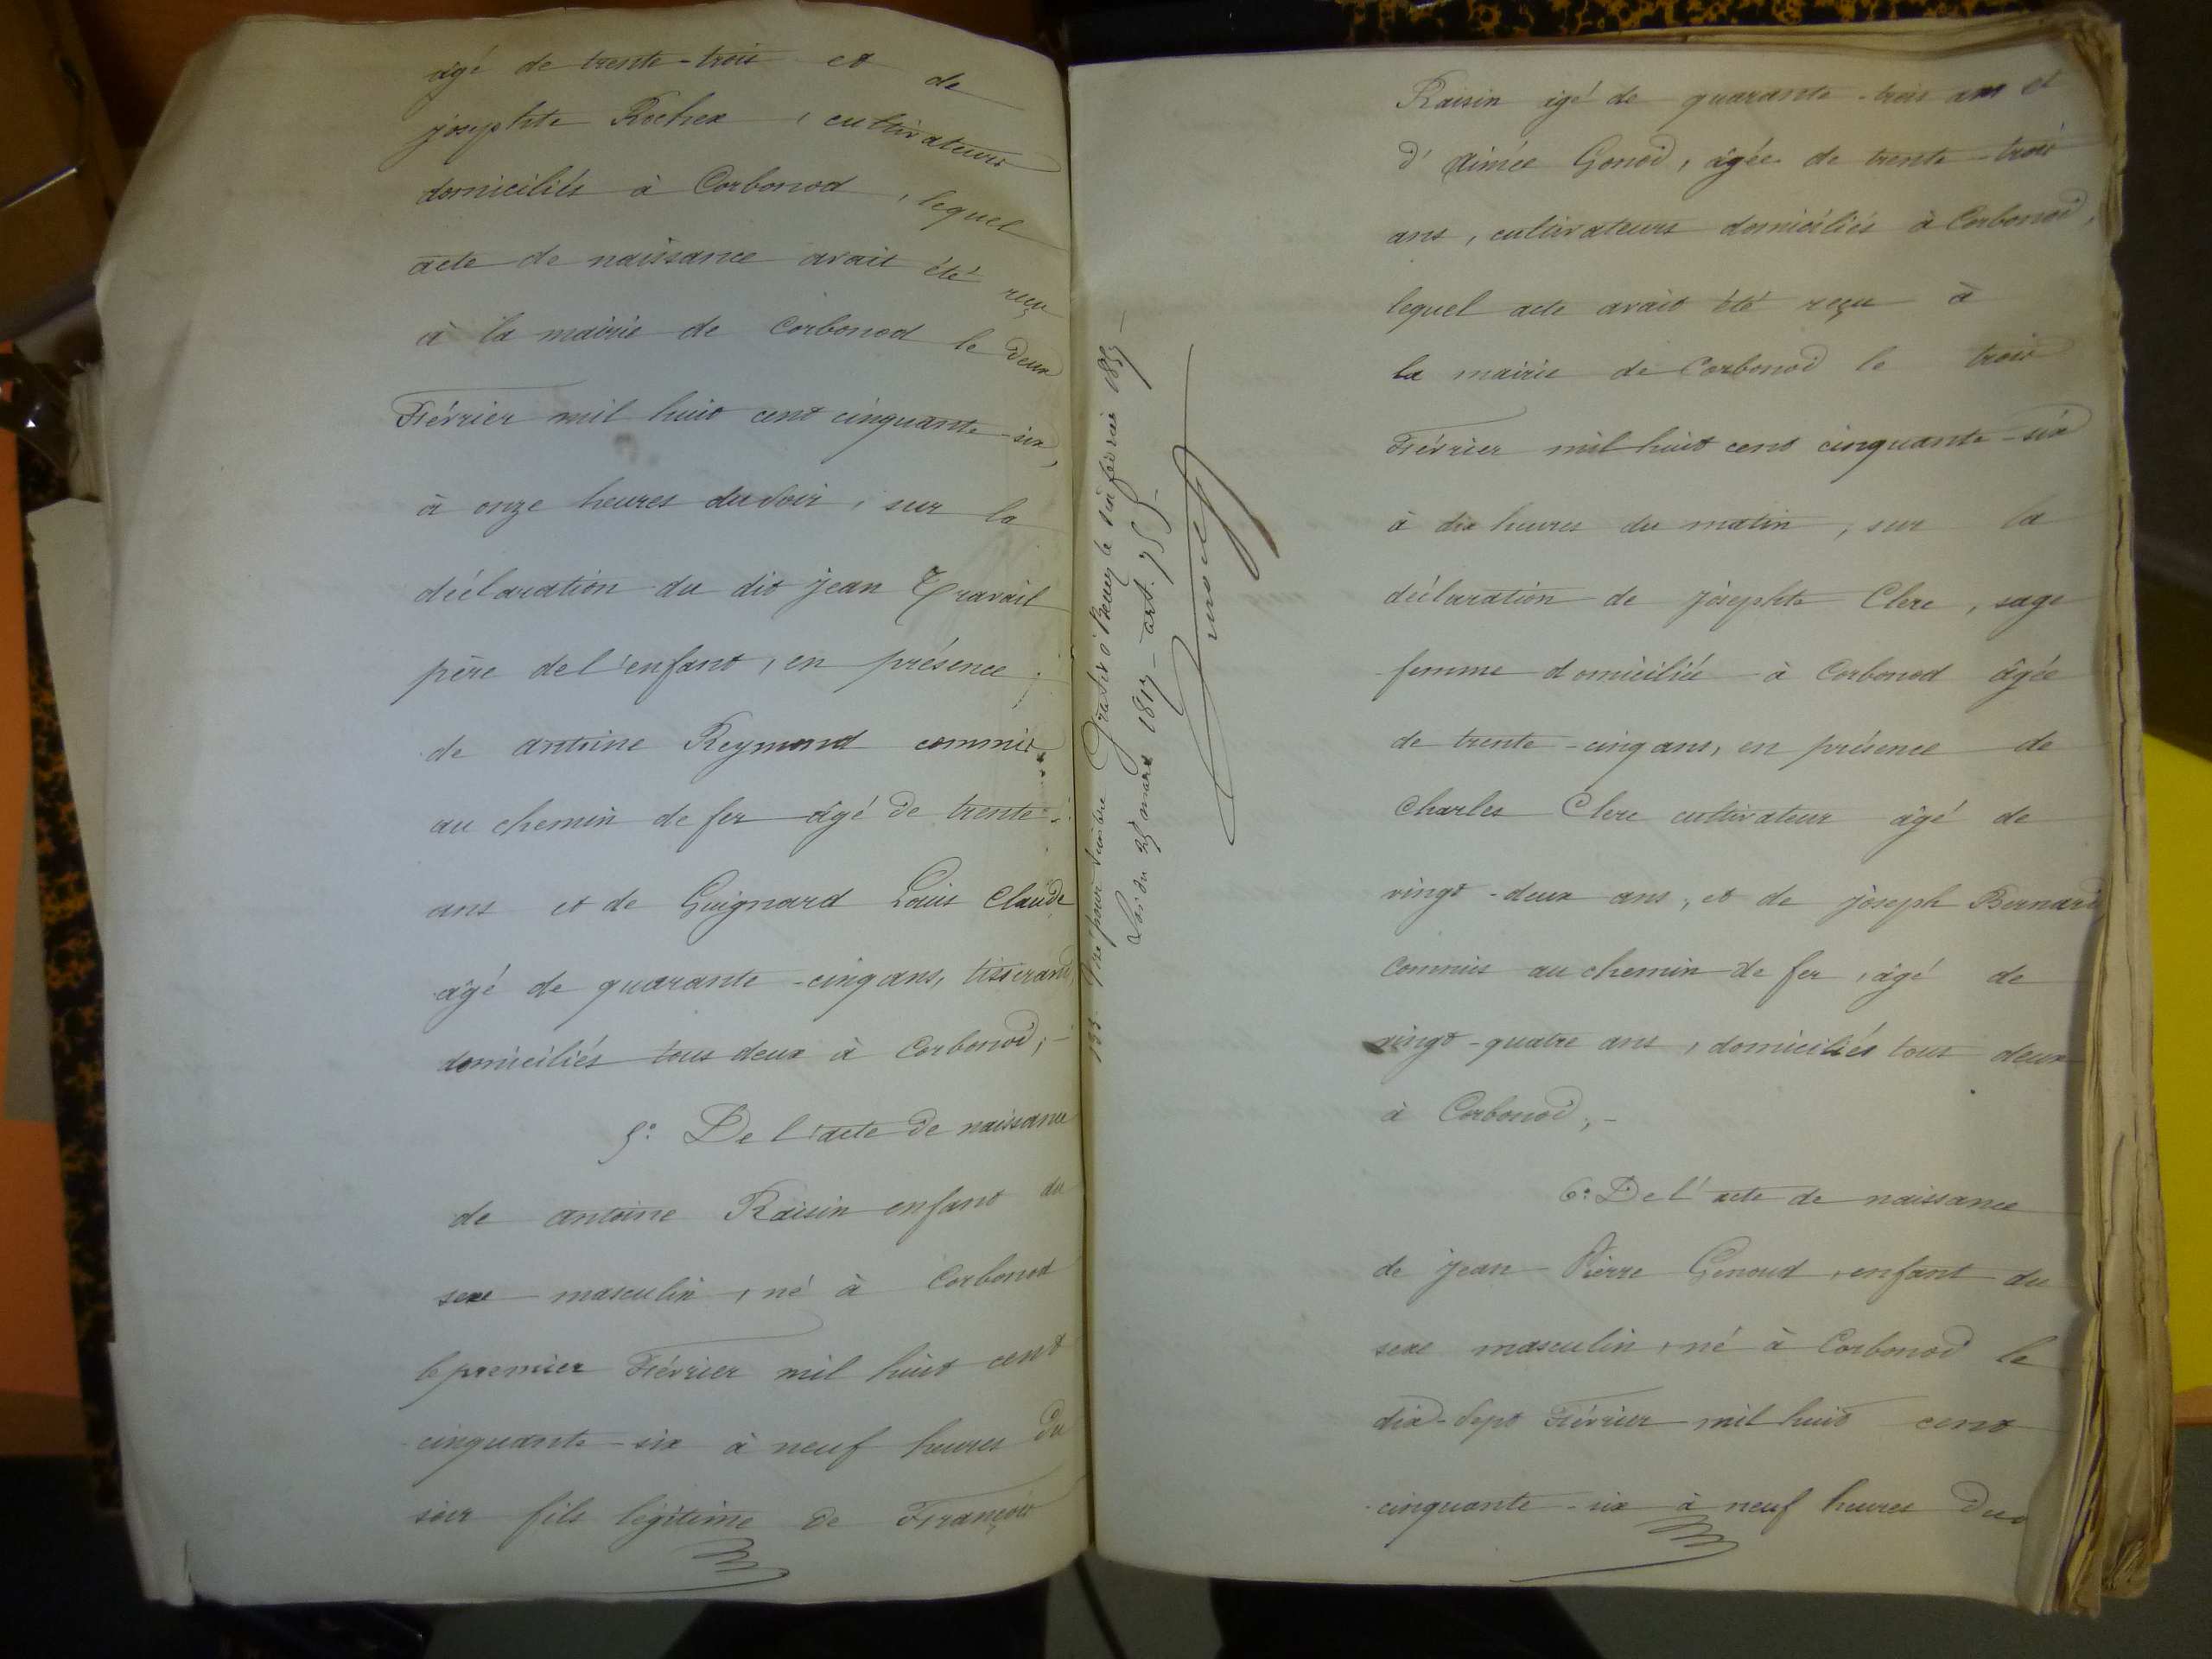 âgé de trente-trois et de
josephte Rochex, cultivateurs
domiciliés à Corbonod, lequel
acte de naissance avait été reçu
à la mairie de Corbonod le deux
Février mil huit cent cinquante-six,
à onze heures du soir, sur la
déclaration du dit jean Travail
père de l'enfant, en présence
de antoine Reymond commis
au chemin de fer âgé de trente
ans et de Guignard Louis Claude
âgé de quarante-cinq ans, tisserand,
domiciliés tous deux à Corbonod;-
5° De l'acte de naissance
de antoine Raisin enfant du
sexe masculin, né à Corbonod
le premier Février mil huit cent
cinquante-six à neuf heures du
soir fils légitime de François
135. Visé pour timbre Gratis à le six février 1857-
Loi du 25 mars 1817 - art. 75
Raisin âgé de quarante-trois ans et
d'Aimée Gonod, âgée de trente-trois
ans, cultivateurs domiciliés à Corbonod,
lequel acte avait été reçu à
la mairie de Corbonod le trois
Février mil huit cent cinquante-six
à dix heures du matin, sur la
déclaration de josephte Clerc, sage
femme domiciliée à Corbonod âgée
de trente-cinq ans, en présence de
Charles Clerc cultivateur âgé de
vingt-deux ans, et de joseph Bernard
commis au chemin de fer, âgé de
vingt-quatre ans, domiciliés tous deux
à Corbonod;-
6° De l'acte de naissance
de jean-Pierre Genoud, enfant du
sexe masculin, né à Corbonod le
dix-sept Février mil huit cent
cinquante-six à neuf heures du